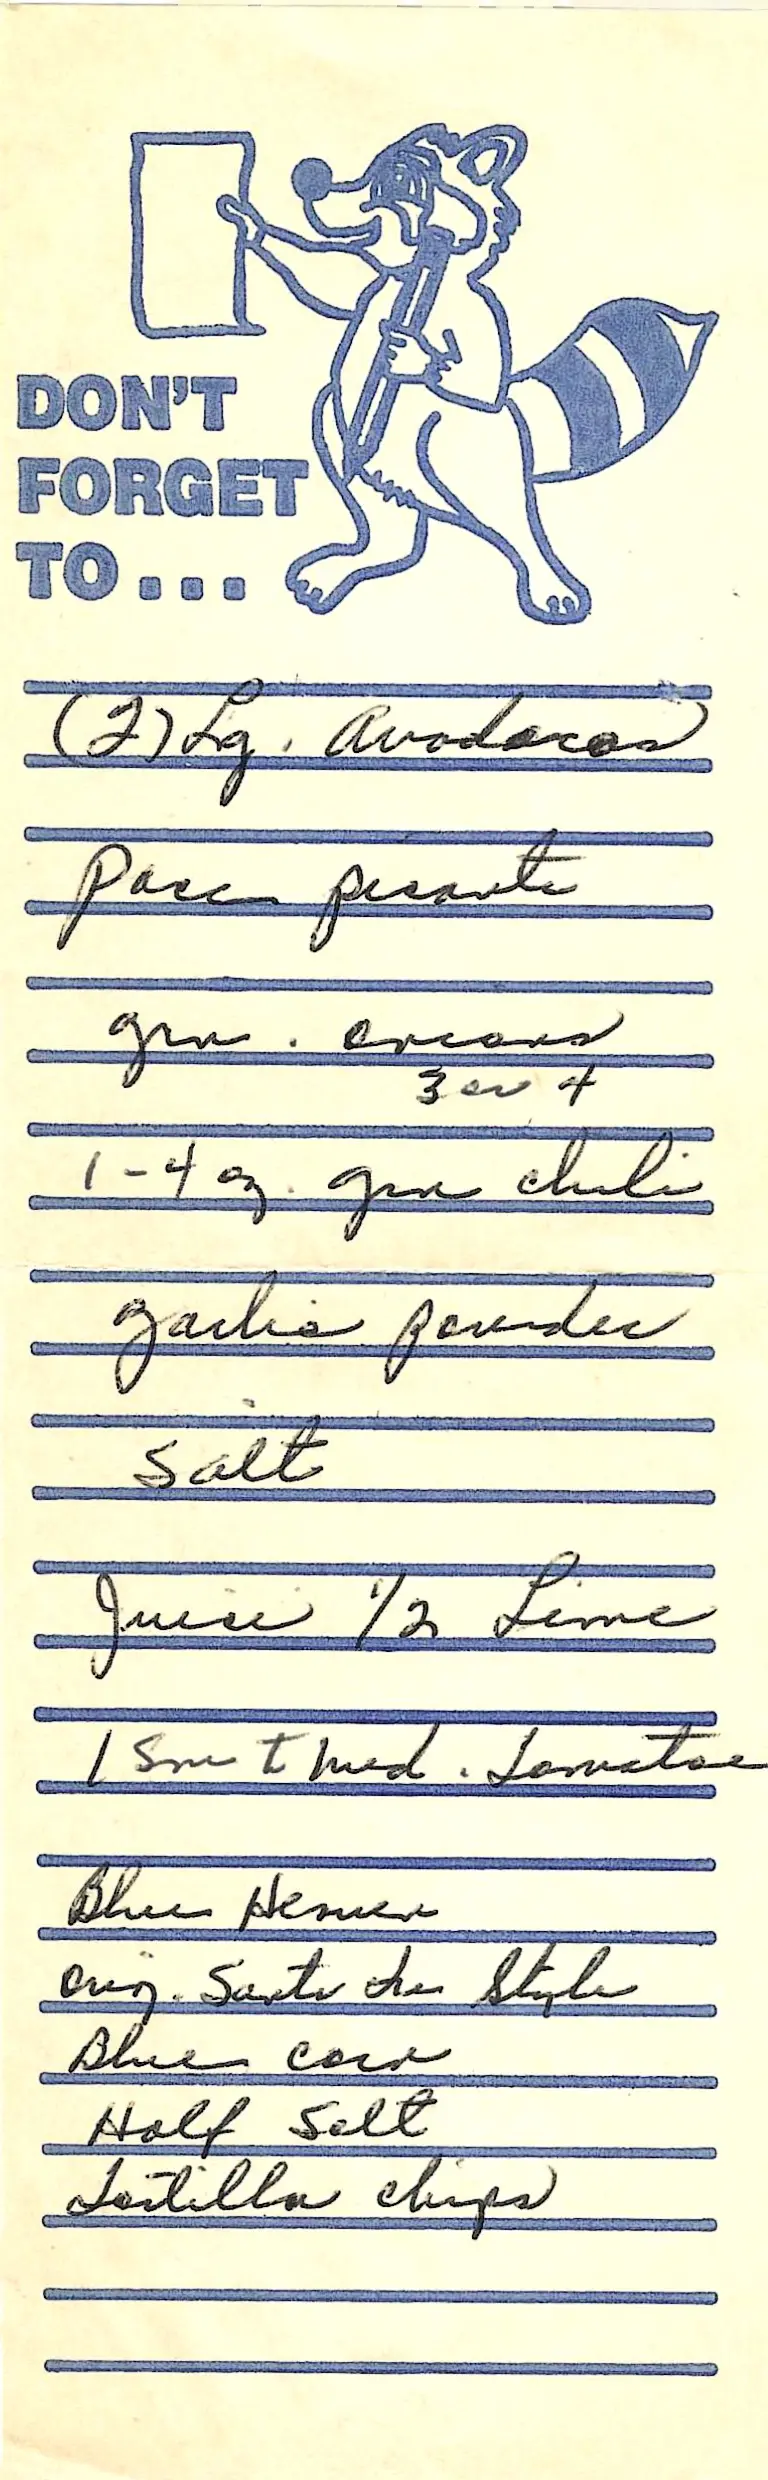 DON'T
FORGET
TO...
(2) Lg. Avodacos
Pace picante
grn. onions
3 or 4
1-4 oz. grn chili
garlic powder
Salt
Juice 1/2 Lime
1 Sm to med. Tomatoe
Blue Heaven
orig. Santa Fe Style
Blue corn
Half Salt
Tortilla chips